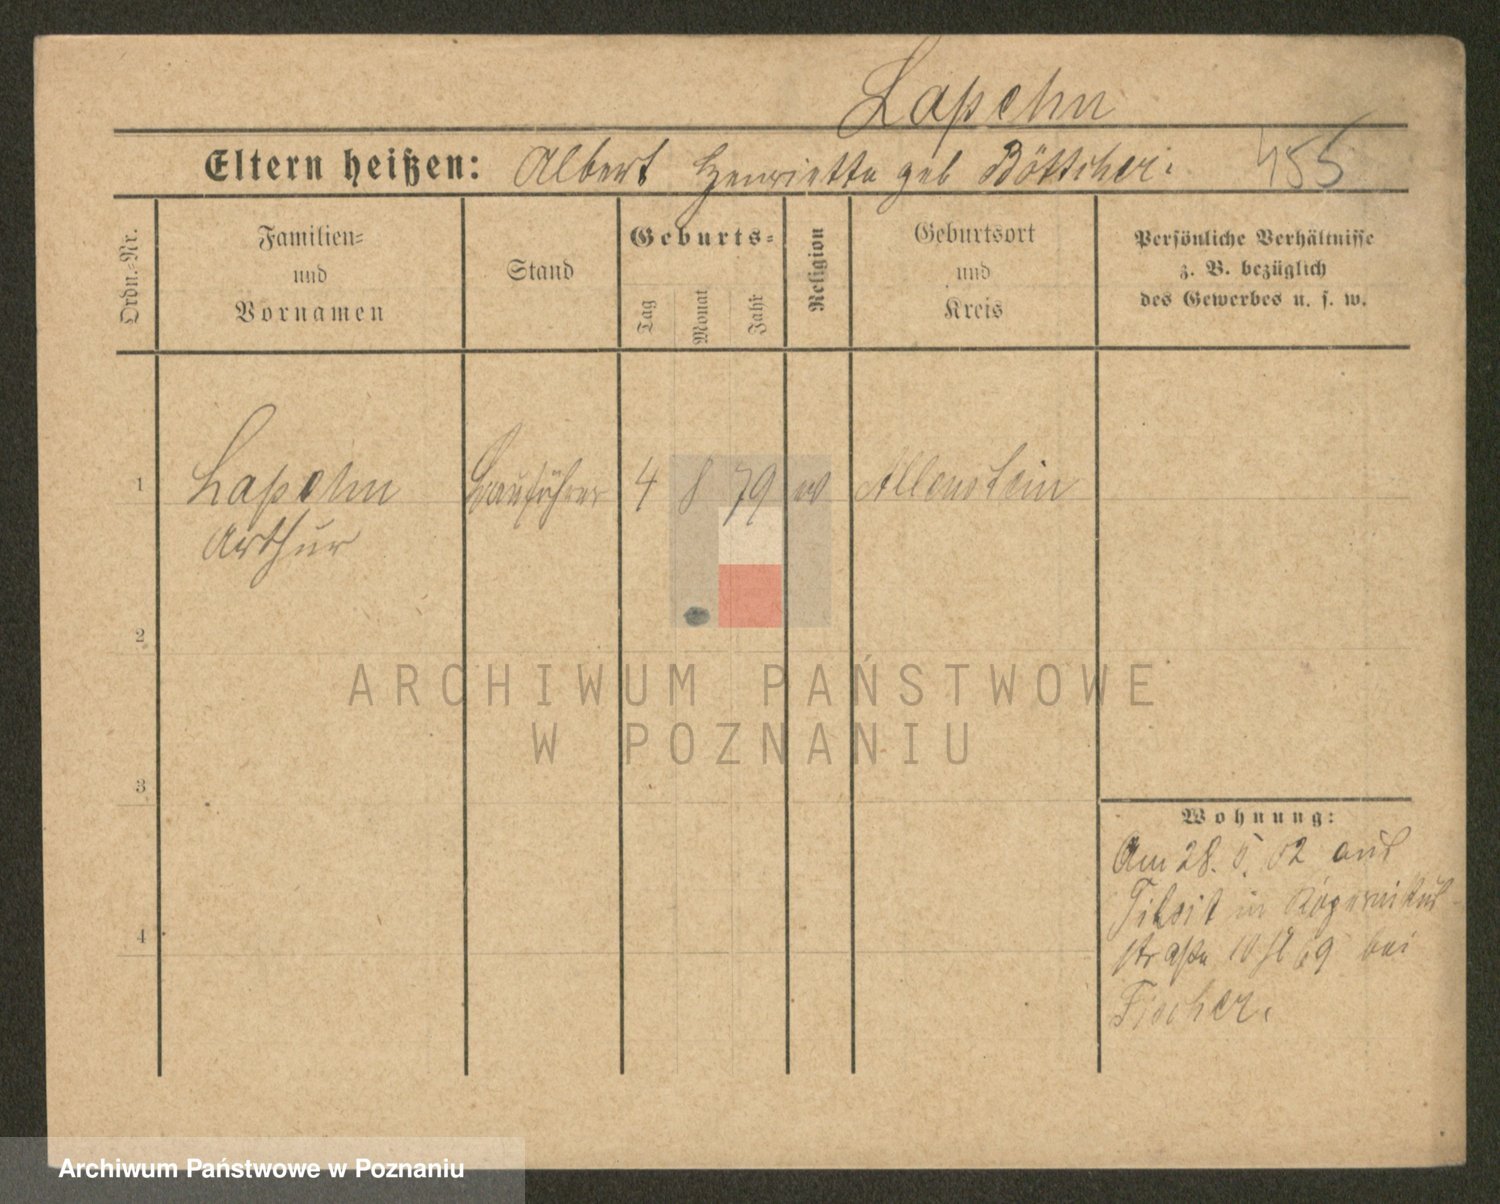 Lapehn
Eltern heißen: Albert Henriette geb Böttcher. 455
Ordn.-Nr.
Familien- und Vornamen
Stand
Geburts-
Tag Monat Jahr
Religion
Geburtsort und Kreis
Persönliche Verhältnisse
z. B. bezüglich
des Gewerbes u. s. w.
1 Lapehn Bauführer 4 8 79 ev Allenstein
Arthur
2
3
4
Wohnung:
Am 28. 5. 02 aus
Tilsit in Kopernikus
straße 10 69 bei
Fischer.
ARCHIWUM PAŃSTWOWE
W POZNANIU
Archiwum Państwowe w Poznaniu